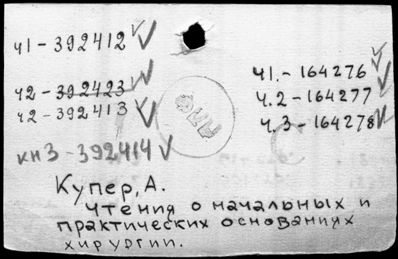 ч1 - 392412
ч2 - 392423
ч2 - 392413
кн3 - 392414
ч1. - 164276
ч.2 - 164277
ч.3 - 164278
Купер, А.
Чтения о начальных и
практических основаниях
хирургии.